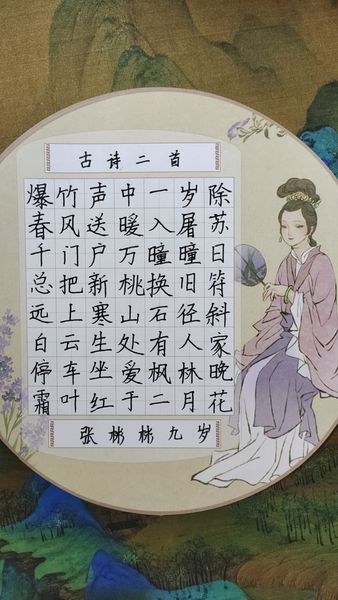 古诗二首
爆竹声中一岁除
春风送暖入屠苏
千门户万曈曈日
总把新桃换旧符
远上寒山石径斜
白云生处有人家
停车坐爱枫林晚
霜叶红于二月花
张彬彬九岁